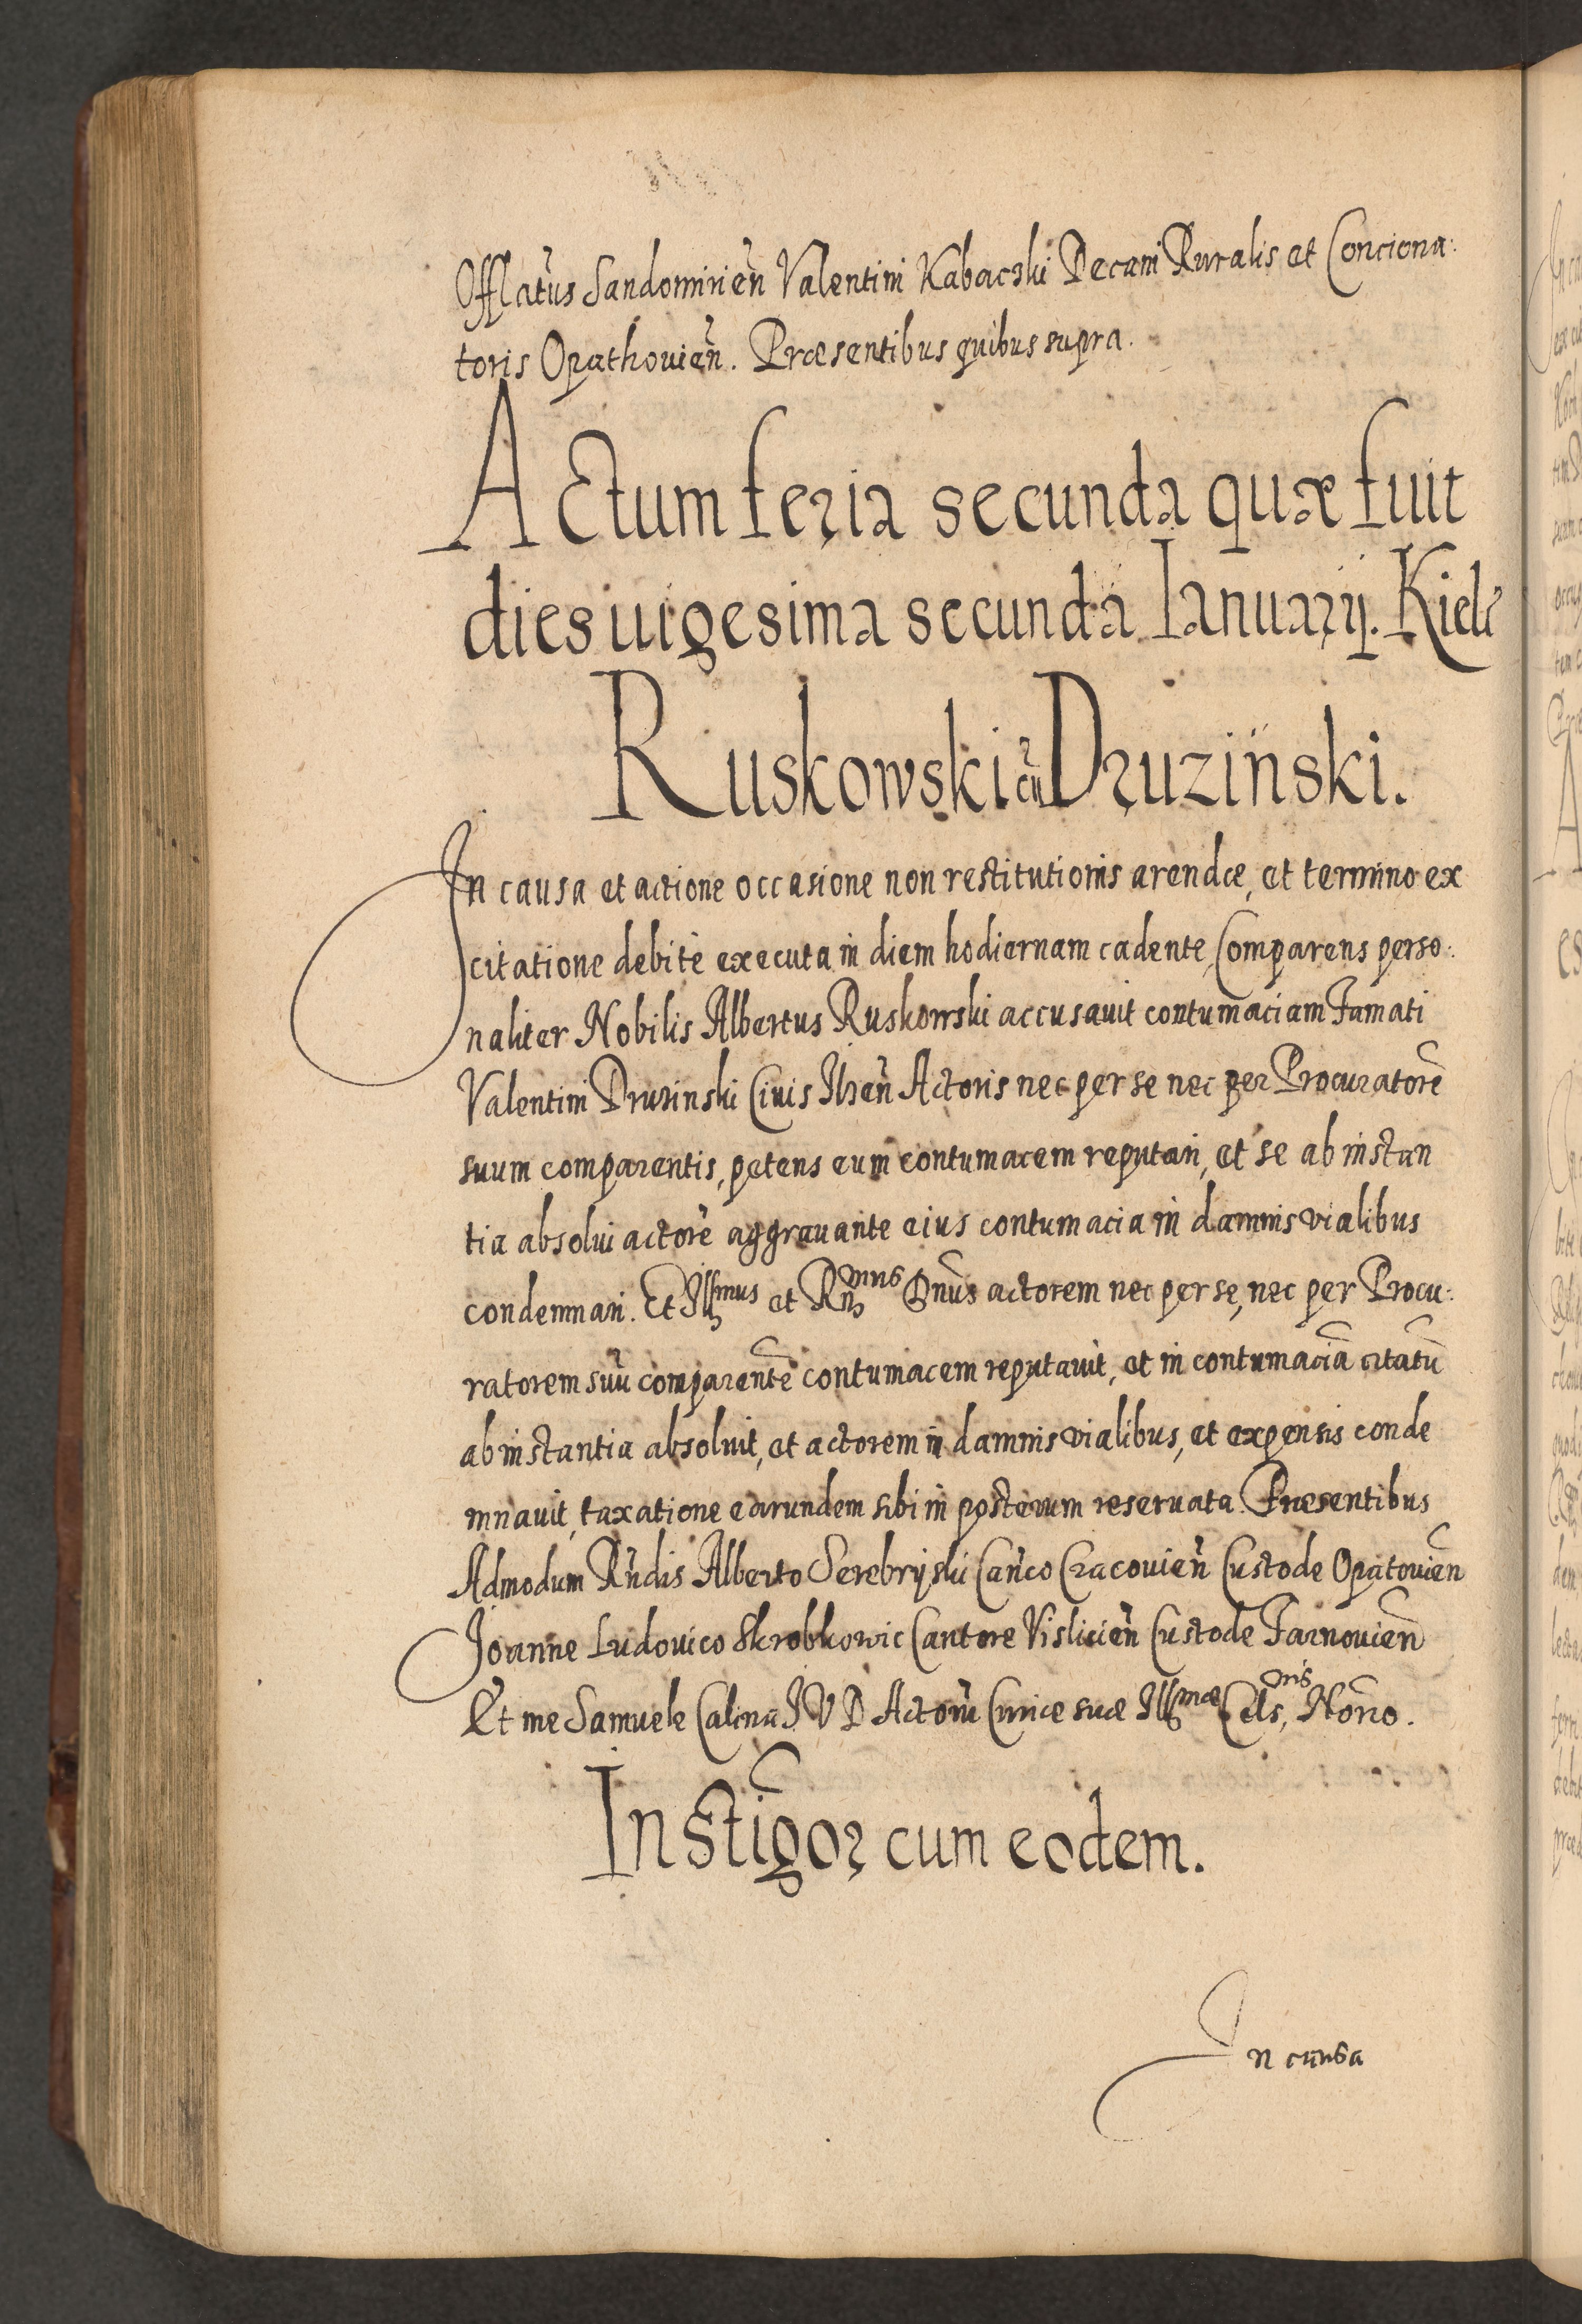 Offlatus Sandomirien̄ Valentini Kabacski Decani Ruralis et Conciona:
toris Opathovien̄. Præsentibus quibus supra.
Actum feria secunda quæ fuit
dies uigesima secunda Ianuarij. Kielc̄
Ruskowski cū Druzinski.
In causa et actione occasione non restitutionis arendæ, et termino ex
citatione debitè executa in diem hodiernam cadente, Comparens perso:
naliter Nobilis Albertus Ruskowski accusauit contumaciam Famati
Valentini Druzinski Ciuis Ilzen̄ Actoris nec per se nec per Procuratorē
suum comparentis, petens eum contumacem reputari, et se ab instan
tia absolui actorē aggrauante eius contumacia in damnis vialibus
condemnari. Et Illmus et Rn̄mus Dnūs actorem nec per se, nec per Procu:
ratorem suū comparentē contumacem reputauit, et in contumaciā citatū
ab instantia absoluit, et actorem in damnis vialibus, et expensis conde
mnauit, taxatione earundem sibi in posterum reseruata. Præsentibus
Admodum Rn̄dis Alberto Serebryski Can̄co Cracouien̄ Custode Opatouien̄
Joanne Ludouico Skrobkowic Cantore Vislicien̄ Custode Tarnouien̄
Et me Samuele Calina J V D Actorū Curiæ suæ Illmæ Cels,nis Norio.
Instigor cum eodem.
In causa